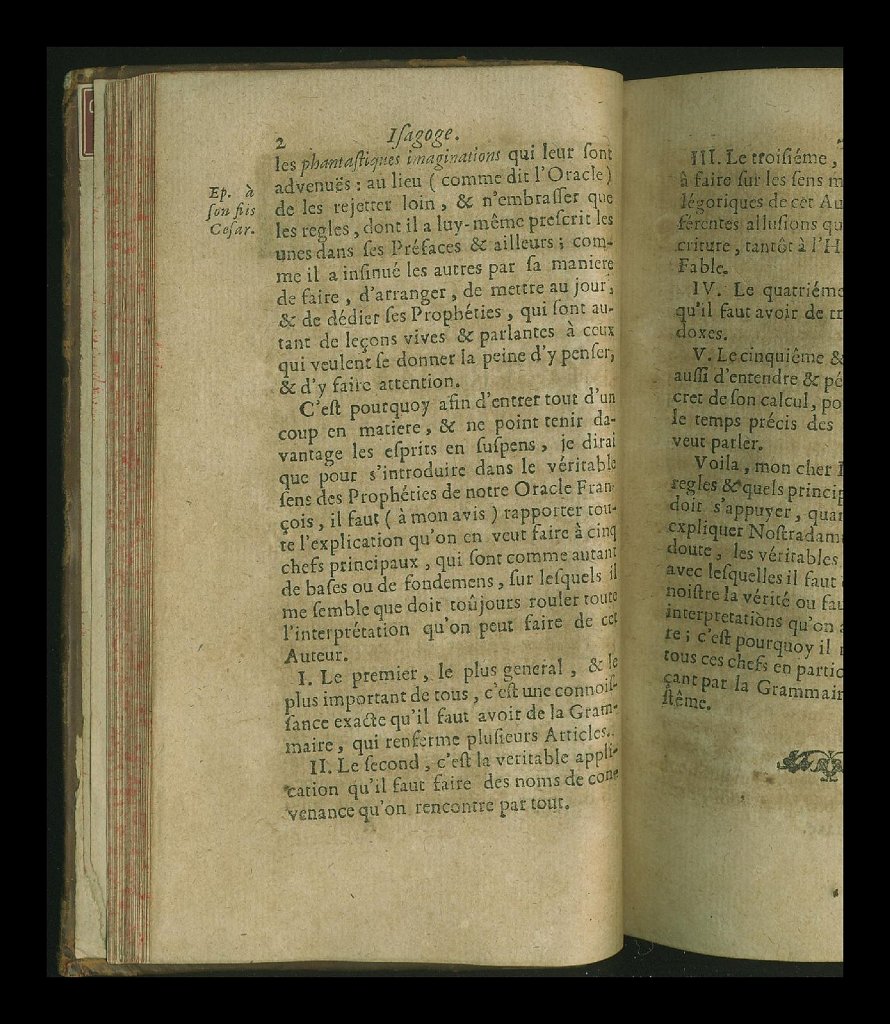 2 Iſagoge.
les phantaſtiques imaginations qui leur ſont
advenuës : au lieu ( comme dit l'Oracle )
de les rejetter loin , & n'embraſſer que
les regles , dont il a luy-même preſcrit les
unes dans ſes Préfaces & ailleurs ; com-
me il a inſinué les autres par ſa maniere
de faire , d'arranger , de mettre au jour ,
& de dédier ſes Prophéties , qui ſont au-
tant de leçons vives & parlantes à ceux
qui veulent ſe donner la peine d'y penſer,
& d'y faire attention.
Ep. à
ſon fils
Ceſar.
C'eſt pourquoy afin d'entrer tout d'un
coup en matiere , & ne point tenir da-
vantage les eſprits en ſuſpens , je dirai
que pour s'introduire dans le véritable
ſens des Prophéties de notre Oracle Fran-
çois , il faut ( à mon avis ) rapporter tou-
te l'explication qu'on en veut faire à cinq
chefs principaux , qui ſont comme autant
de baſes ou de fondemens , ſur leſquels il
me ſemble que doit toûjours rouler toute
l'interprétation qu'on peut faire de cet
Auteur.
I. Le premier , le plus general , & le
plus important de tous , c'eſt une connoiſ-
ſance exacte qu'il faut avoir de la Gram-
maire , qui renferme pluſieurs Articles.
II. Le ſecond , c'eſt la veritable appli-
cation qu'il faut faire des noms de con-
venance qu'on rencontre par tout.
III. Le troiſiéme ,
à faire ſur les ſens
légoriques de cet Au
férentes alluſions qu
criture , tantôt à l'H
Fable.
IV. Le quatriéme
qu'il faut avoir de
doxes.
V. Le cinquiême &
auſſi d'entendre & pé
cret de ſon calcul, po
le temps précis des
veut parler.
Voila , mon cher
regles & quels princip
doit s'appuyer , quan
expliquer Noſtradam
doute , les véritables
avec leſquelles il faut
noiſtre la vérité ou fau
interpretations qu'on
re ; c'eſt pourquoy il
tous ces chefs en partic
çant par la Grammair
ſtême.